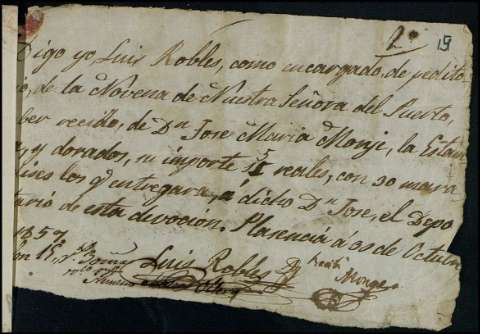 2º 19
Digo yo, Luis Robles, como encargado, de pedito-
rio, de la Novena de Nuestra Señora del Puerto,
ber recido, de Dn Jose Maria Monje, la Estam
a, y dorados, su importe reales, con 20 mara
dises los q entregara, á dicho Dn Jose, el Depo
tario de esta devocion. Plasencia á 02 de Octubre
1857
Luis Robles Monge